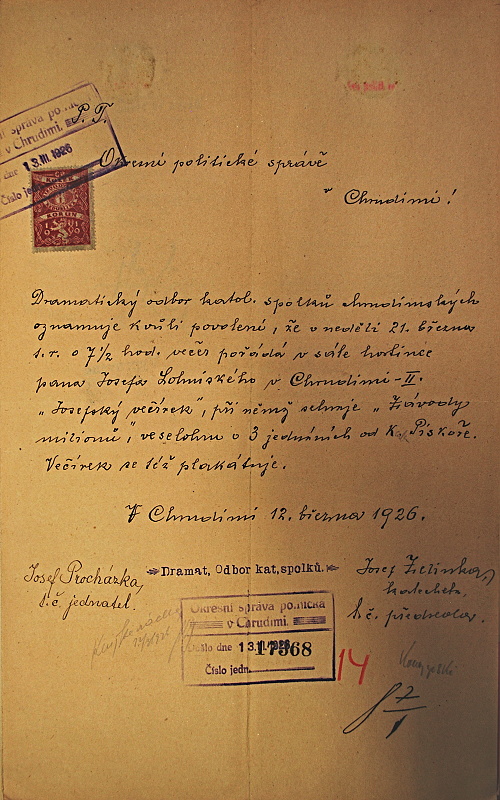 Okresní správa politická
v Chrudimi.
dne 13.III.1926
Číslo jedn.
P. T.
Okresní politické správě
v Chrudimi!
KOREK
KORUN
Dramatický odbor katol. spolků chrudimských
oznamuje kvůli povolení, že v neděli 21. března
t.r. o 7½ hod. večer pořádá v sále hostince
pana Josefa v Chrudimi-II.
„Josefský večírek", při němž sehraje „Závody
milionů", veselohru o 3 jednáních od K. Piskoře.
Večírek se též plakátuje.
V Chrudimi 12. března 1926.
Josef Procházka,
t.č. jednatel.
Dramat, Odbor kat,spolků.
Josef Zelinka,
katecheta,
t.č. předseda.
Okresní správa politická
v Chrudimi.
Došlo dne 13.III.1926
17568
Číslo jedn.
14